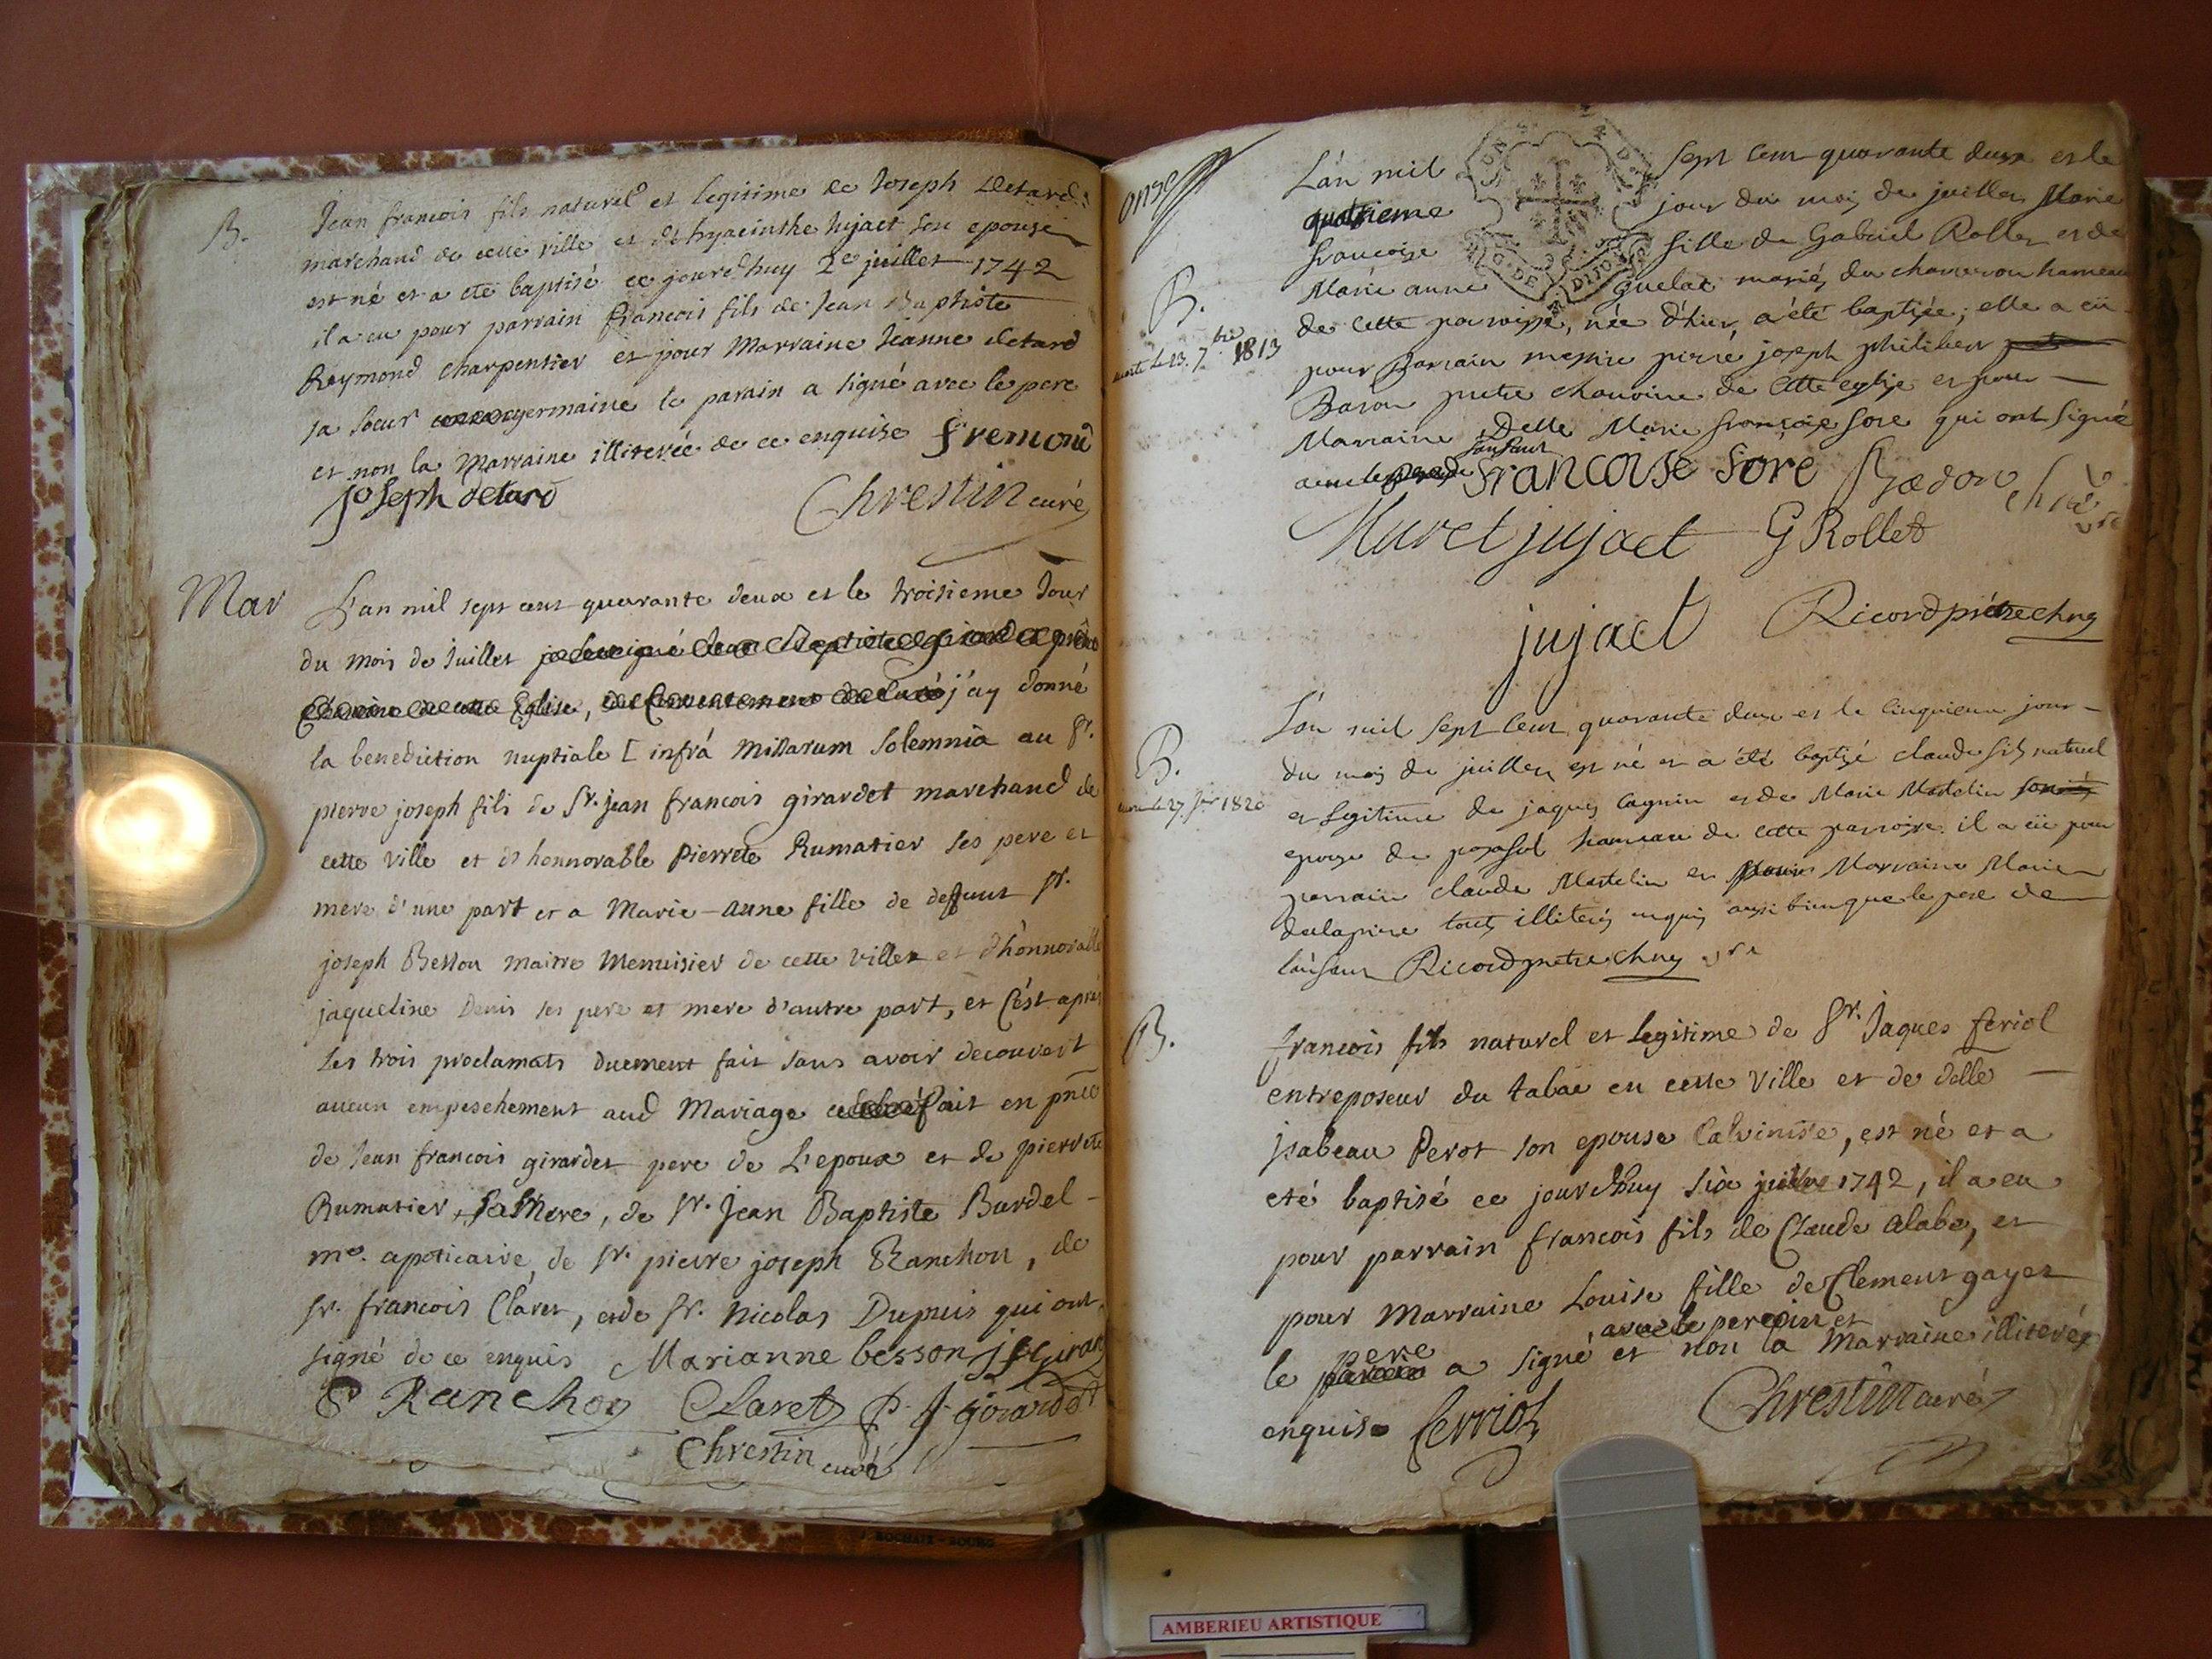 B.
Jean francois fils naturel et legitime de Joseph detard
marchand de cette ville et d'hyacinthe Jujact son epouse
est né et a eté baptisé ce jourdhuy 2e juillet 1742
il a eu pour parrain francois fils de Jean Baptiste
Raymond charpentier et pour Marraine Jeanne detard
sa soeur germaine le parain a signé avec le pere
et non la Marraine illiterée de ce enquise fremond
joseph detard Chrestin curé
Mar
L'an mil sept cent quarante deux et le troisieme Jour
du mois de Juillet je soussigné Jean Baptiste
Eglise, du Consentement j'ay donné
la benediction nuptiale [ infrá missarum solemnia au Sr.
pierre joseph fils de Sr. jean francois girardet marchand de
cette ville et d'honnorable pierrete Rumatier ses pere et
mere d'une part et a Marie-anne fille de deffunt Sr.
joseph Besson maitre Menuisier de cette ville et d'honnorable
jaqueline Denis ses pere et mere d'autre part, et c'est aprés
les trois proclamats duement fait sans avoir decouvert
aucun empeschement aud Mariage fait en pnce
de Jean francois girardet pere de L'epoux et de pierrete
Rumatier sa Mere, de Sr. Jean Baptiste Burdel -
me. apoticaire, de Sr. pierre joseph Ranchon, de
Sr. francois Claret, et de Sr. Nicolas Dupuis qui ont
signé de ce enquis Marianne besson
P Ranchon Claret p. J. girardet
Chrestin curé
onze
L'an mil sept cent quarante deux et le
quatrieme jour du mois de juillet Marie
francoise fille de Gabriel Rollet et de
Marie anne Guelat mariés du chameron hameau
B.
de cette parroisse, née d'hier, a été baptisée; elle a eü
morte le 23. 7bre 1813
pour Parrain messire pierre joseph philibert
Baron pretre chanoine de cette eglise et pour
Marraine Delle Marie francoise sore qui ont signé
francoise sore
Muret jujact G Rollet
jujact Ricord prêtre chne
L'an mil sept cent quarante deux et le cinquieme jour
B.
du mois de juillet est né et a été baptizé claude fils naturel
1820
et legitime de jaques cagnin et de Marie Mortelin
epouse de posasol hameau de cette parroisse il a eü pour
parrain claude Mortelin et pour Marraine Marie
delapierre tous illiterés enquis aussi bien que le pere de
l'enfant Ricord pretre chne
B.
francois fils naturel et legitime de Sr. Jaques feriol
entreposeur du tabac en cette Ville et de delle
jsabeau Perot son epouse Calviniste, est né et a
eté baptisé ce jourdhuy six juillet 1742, il a eu
pour parrain francois fils de Claude alabe, et
pour Marraine Louise fille de Clement gayet
le pere a signé et non la Marraine illiterée
enquise ferriol Chrestin curé
AMBERIEU ARTISTIQUE